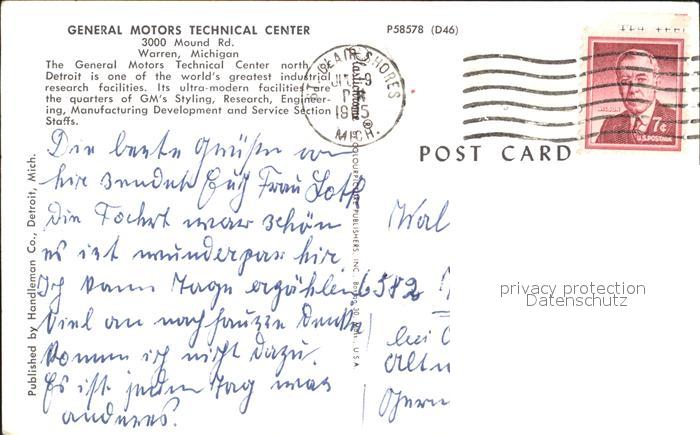 GENERAL MOTORS TECHNICAL CENTER
3000 Mound Rd.
Warren, Michigan
The General Motors Technical Center north
Detroit is one of the world's greatest industrial
research facilities. Its ultra-modern facilities are
the quarters of GM's Styling, Research, Engineer-
ing, Manufacturing Development and Service Section
Staffs.
P58578 (D46)
ST. CLAIR SHORES
MICH.
7¢
U.S. POSTAGE
POST CARD
Die beste Grüße von
hir sendet Euch Frau
Die Fahrt war schön
es ist wunderpar hir
Ich kann Tage erzählen
Viel an nachhause
komm ich nicht dazu.
Es ist jeden Tag was
anderes.
Wal
6582
bei
Altn
Germ
Published by Handleman Co., Detroit, Mich.
Plastichrome®
COLOURPICTURE PUBLISHERS, INC., Boston 30, Mass., U.S.A.
privacy protection
Datenschutz